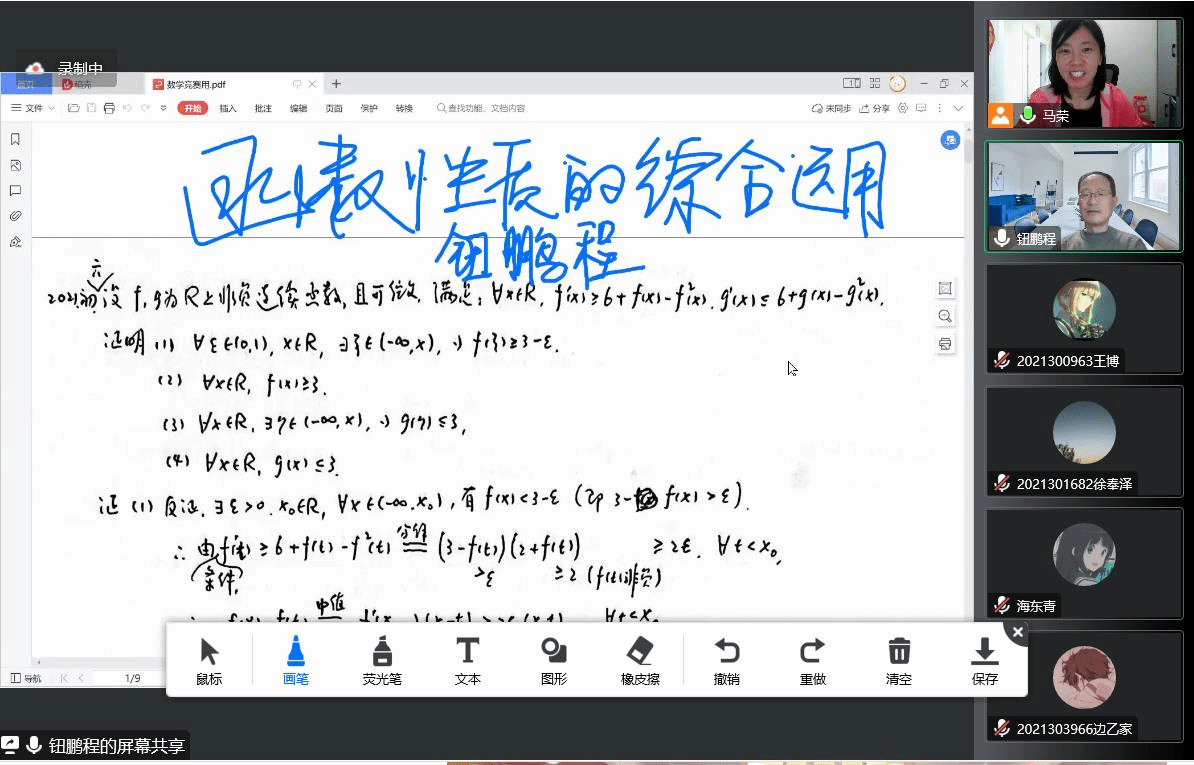 录制中
首页 稻壳 数学竞赛用.pdf
文件 开始 插入 批注 编辑 页面 保护 转换 查找功能、文档内容 未同步 分享
函数性质的综合运用
钮鹏程
六
2021初 设 f, g为R上非负连续函数, 且可微, 满足: ∀x∈R, f'(x)≥6+f(x)-f²(x), g'(x)≤6+g(x)-g²(x),
证明 (1) ∀ε∈(0,1), x∈R, ∃ξ∈(-∞,x), ∋ f(ξ)≥3-ε.
(2) ∀x∈R, f(x)≥3.
(3) ∀x∈R, ∃η∈(-∞,x), ∋ g(η)≤3,
(4) ∀x∈R, g(x)≤3.
证 (1) 反证, ∃ε>0, x₀∈R, ∀x∈(-∞,x₀), 有 f(x)<3-ε (即 3-f(x)>ε).
∴ 由f'(t)≥6+f(t)-f²(t) 分解 (3-f(t))(2+f(t)) ≥2ε, ∀t<x₀,
条件, >ε ≥2 (f(t)非负)
中值
鼠标 画笔 荧光笔 文本 图形 橡皮擦 撤销 重做 清空 保存
导航 1/9
钮鹏程的屏幕共享
马荣
钮鹏程
2021300963王博
2021301682徐奉泽
海东青
2021303966边乙家